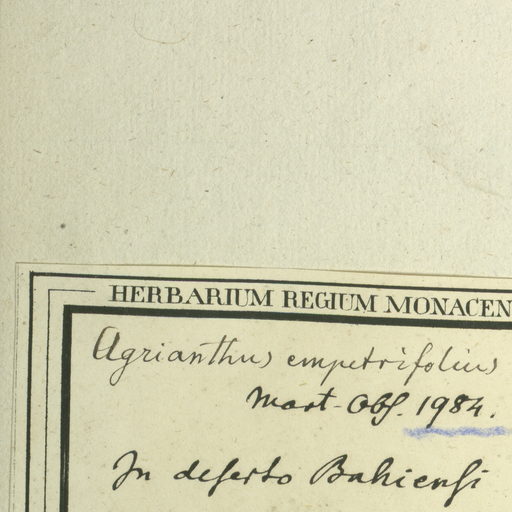 HERBARIUM REGIUM MONACEN
Agrianthus empetrifolius
Mart. Obs. 1984.
In deserto Bahiensi